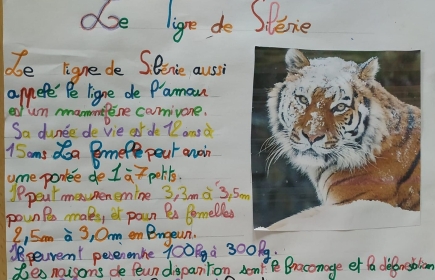 Le Tigre de Sibérie
Le tigre de Sibérie aussi
appelé le tigre de l'amour
est un mammifère carnivore.
Sa durée de vie est de 12 ans à
15 ans La femelle peut avoir
une portée de 1 à 7 petits.
Il peut mesurer entre 3,3m à 3,5m
pour les males, et pour les femelles
2,5m à 3,0m en longeur.
Ils peuvent peser entre 100kg à 300kg.
Les raisons de leur disparition sont le braconage et la déforestation